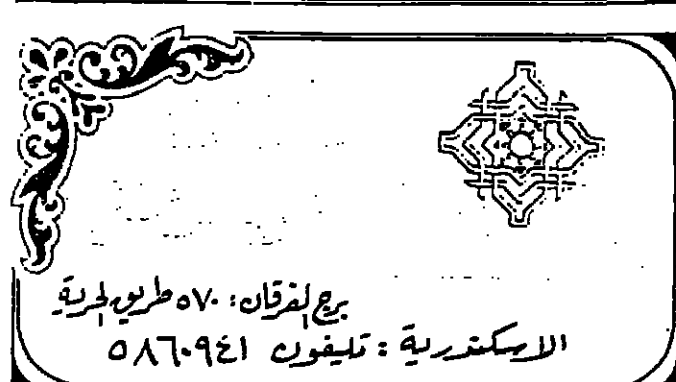 برج الفرقان: ٥٧٠ طريق الحرية
الاسكندرية: تليفون ٥٨٦٠٩٤١